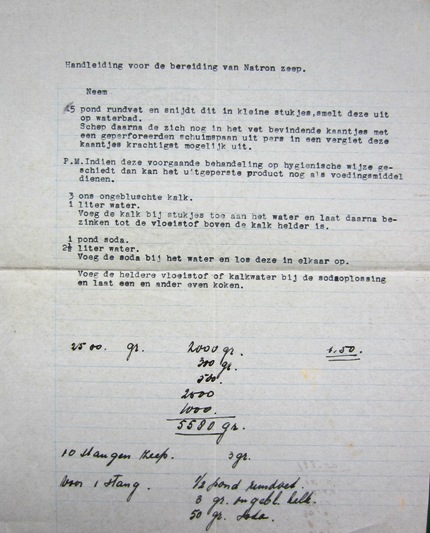 Handleiding voor de bereiding van Natron zeep.
Neem
5 pond rundvet en snijdt dit in kleine stukjes,smelt deze uit
op waterbad.
Schep daarna de zich nog in het vet bevindende kaantjes met
een geperforeerden schuimspaan uit pers in een vergiet deze
kaantjes krachtigst mogelijk uit.
P.M.Indien deze voorgaande behandeling op hygienische wijze ge-
schiedt dan kan het uitgeperste product nog als voedingsmiddel
dienen.
3 ons ongebluschte kalk.
1 liter water.
Voeg de kalk bij stukjes toe aan het water en laat daarna be-
zinken tot de vloeistof boven de kalk helder is.
1 pond soda.
2½ liter water.
Voeg de soda bij het water en los deze in elkaar op.
Voeg de heldere vloeistof of kalkwater bij de sodaoplossing
en laat een en ander even koken.
2500. gr. 2000 gr. 1.50.
300 gr.
2000
1000.
5580 gr.
10 stangen zeep. 3 gr.
Voor 1 stang. ½ pond rundvet.
3 gr. ongebl. kalk.
50 gr. soda.